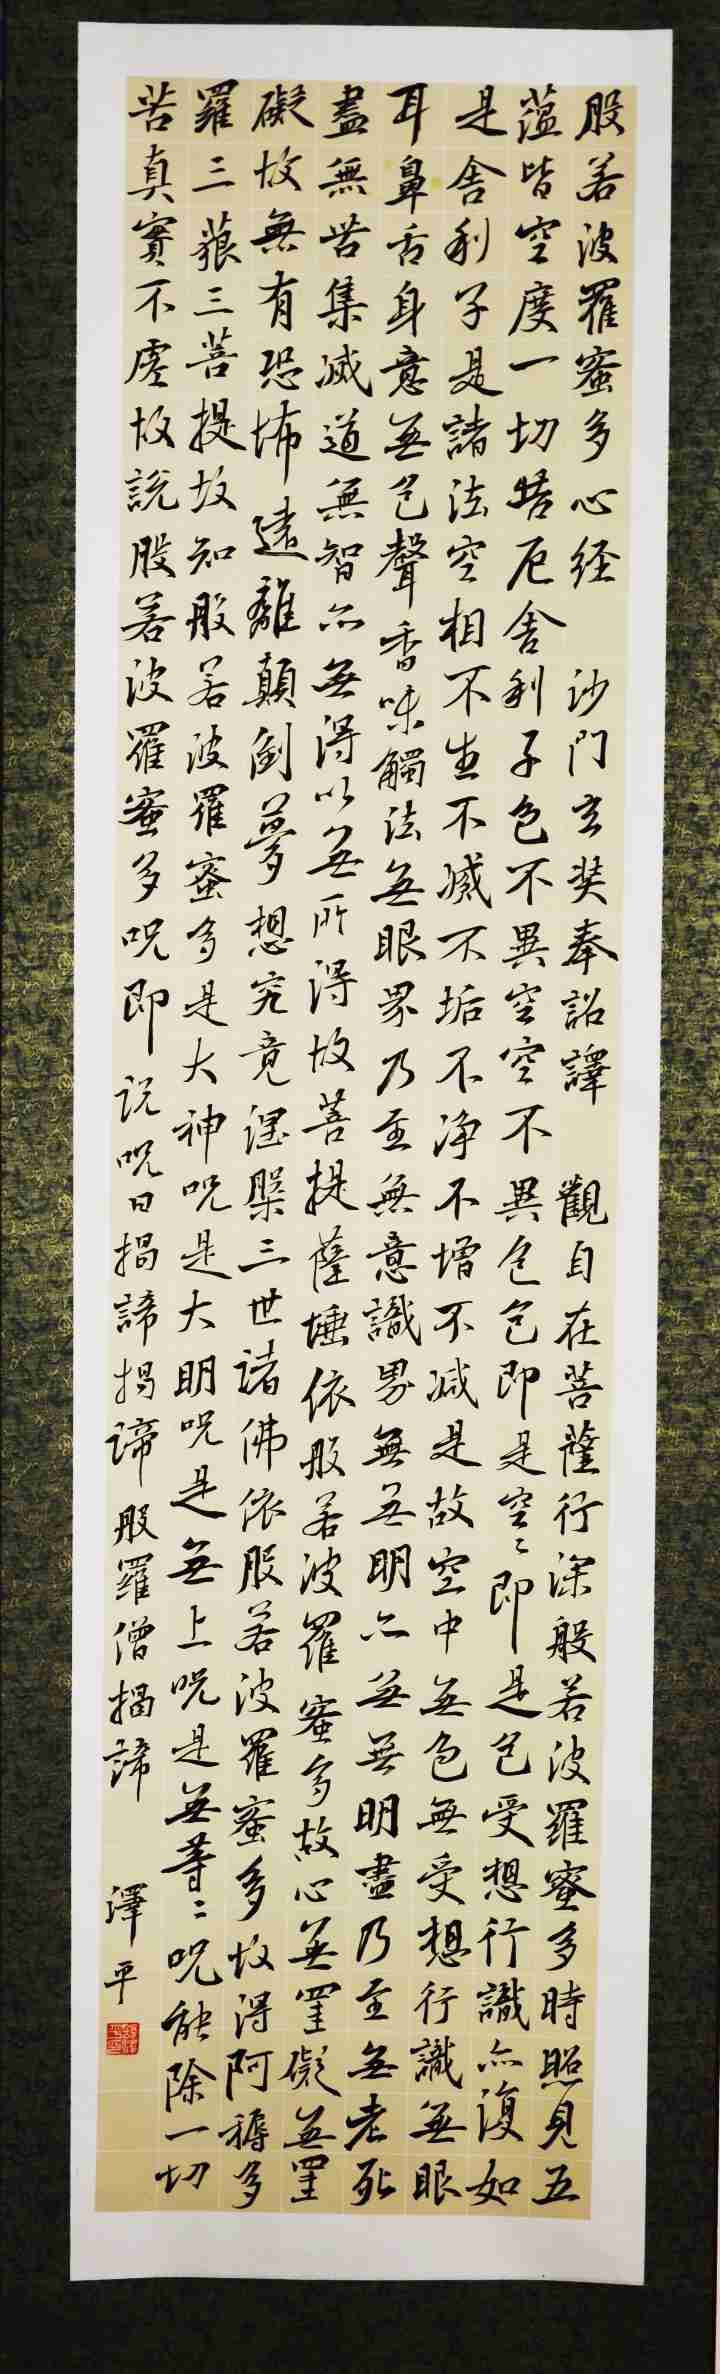 般若波羅蜜多心经 沙門玄奘奉詔譯 觀自在菩薩行深般若波羅蜜多時照見五
蕴皆空度一切苦厄舍利子色不異空空不異色色即是空〻即是色受想行識亦復如
是舍利子是諸法空相不生不滅不垢不净不增不减是故空中無色無受想行識無眼
耳鼻舌身意無色聲香味觸法無眼界乃至無意識界無無明亦無無明盡乃至無老死
盡無苦集滅道無智亦無得以無所得故菩提薩埵依般若波羅蜜多故心無罣礙無罣
礙故無有恐怖遠離顛倒夢想究竟涅槃三世諸佛依般若波羅蜜多故得阿耨多
羅三藐三菩提故知般若波羅蜜多是大神呪是大明呪是無上呪是無等〻呪能除一切
苦真實不虛故説般若波羅蜜多呪即説呪曰揭諦揭諦般羅僧揭諦 澤平